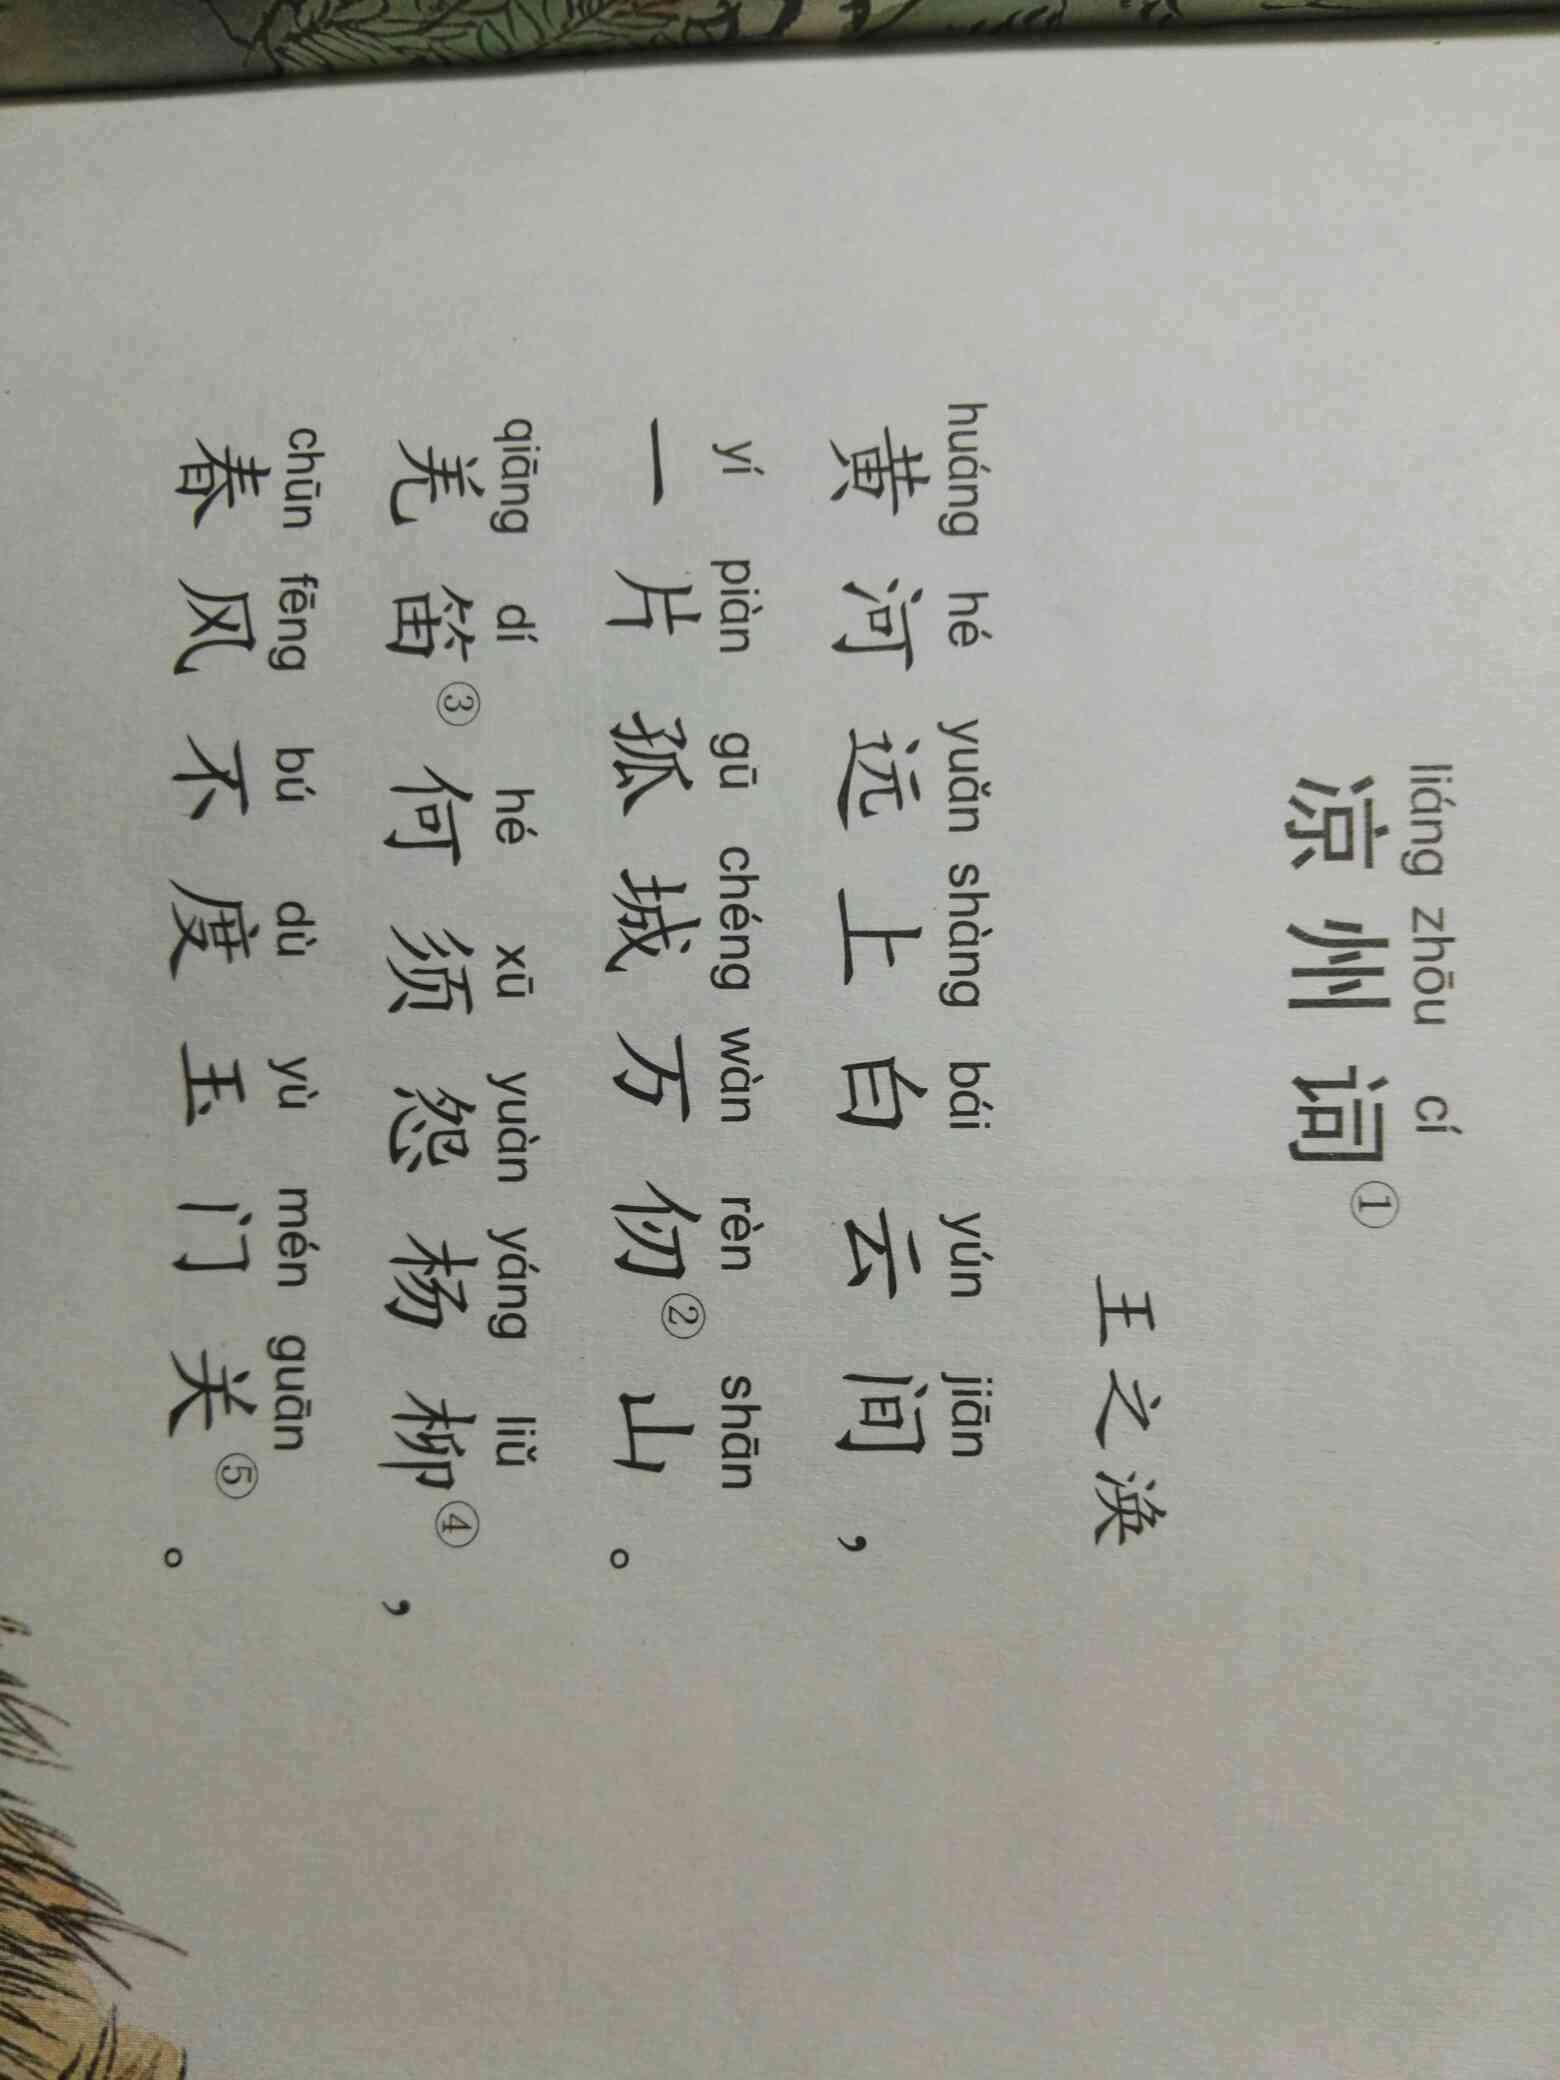 liáng zhōu cí
凉州词①
王之涣
huáng hé yuǎn shàng bái yún jiān
黄河远上白云间，
yí piàn gū chéng wàn rèn shān
一片孤城万仞②山。
qiāng dí hé xū yuàn yáng liǔ
羌笛③何须怨杨柳④，
chūn fēng bú dù yù mén guān
春风不度玉门关⑤。